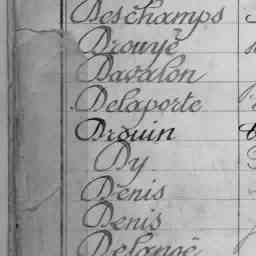 Deschamps
Drouyé
Davalon
Delaporte
Drouin
Dy
Denis
Denis
Delanoë